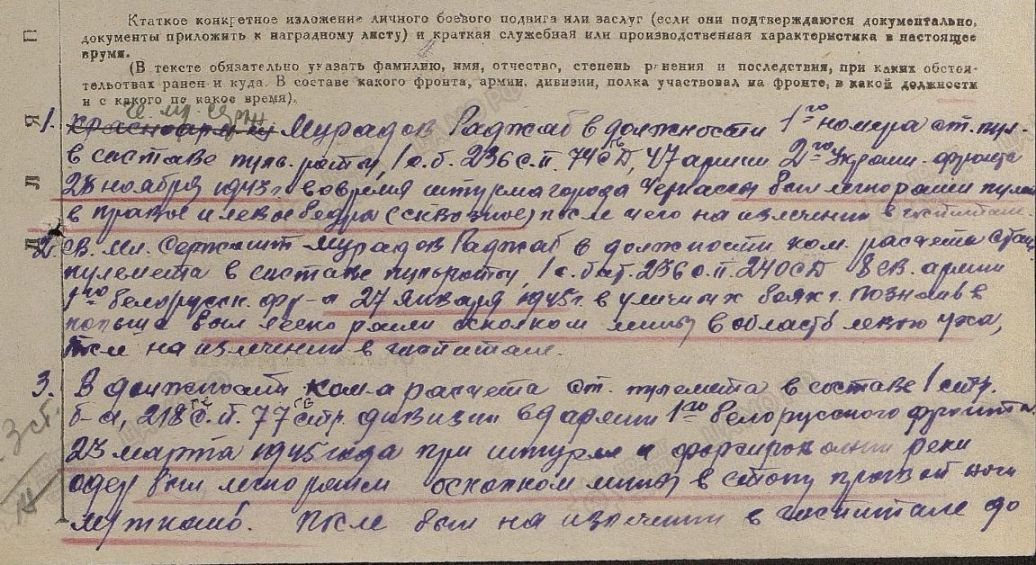 Ктаткое конкретное изложение личного боевого подвига или заслуг (если они подтверждаются документально,
документы приложить к наградному листу) и краткая служебная или производственная характеристика в настоящее
врумя.
(В тексте обязательно указать фамилию, имя, отчество, степень ранения и последствия, при каких обстоя-
тельотвах ранен и куда. В составе какого фронта, армии, дивизии, полка участвовал на фронте, в какой должности
и с какого по какое время).
1. Красноармеец Мурадов Раджаб в должности 1го номера ст. пул.
в составе пульроты, 1 с.б. 236 с.п. 74 СД, 47 армии 2го Украин. фронта
28 ноября 1943 г. вовремя штурма города Черкассы был легко ранен пулей
в правое и левое бедра (сквозное) после чего на излечении в госпитале
2. Св. Мл. Сержант Мурадов Раджаб в должности ком. расчета стан
пулемета в составе пульроты, 1 с.бат. 236 с.п. 240 СД 8 гв. армии
1го белорусск. фр-а 27 января 1945 г. в уличных боях г. Познань в
польша был легко ранен осколком мины в область левого уха,
после на излечении в госпитале.
3. В должности ком-а расчета ст. пулемета в составе 1 стр.
б-а, 218 гв с.п. 77 гв стр. дивизии 69 армии 1го белорусского фронта
23 марта 1945 года при штурме и форсировании реки
одер был легко ранен осколком мины в стопу правой ноги
После был на излечении в госпитале до
3 ст.
ДЛЯ П